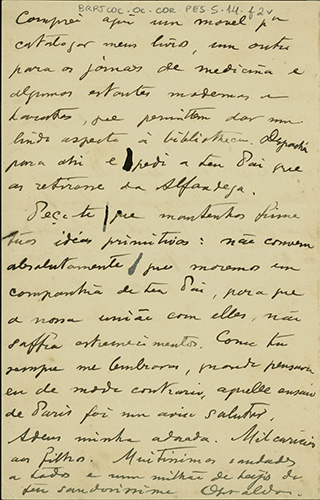 BR RJ COC-OC-COR PES 5-14. f2v
Comprei aqui um movel pa
catalogar meus livros, um outro
para os jornaes de medicina e
algumas estantes modernas e
baratas, que permittem dar um
lindo aspecto à bibliotheca. Despachei
para ahi e pedi a teu Pai que
as retirasse da Alfandega.
Peço-te que mantenhas firme
tuas idéas primitivas: não convem
absolutamente que moremos em
companhia de teu Pai, para que
a nossa união com elles, não
soffra estremecimentos. Como tu
sempre me lembravas, quando pensava
eu de modo contrario, aquelle ensaio
de Paris foi um aviso salutar.
Adeus minha adorada. Mil caricias
aos filhos. Muitissimas saudades
a todos e um milhão de beijos do
teu saudosissimo Oswaldo.